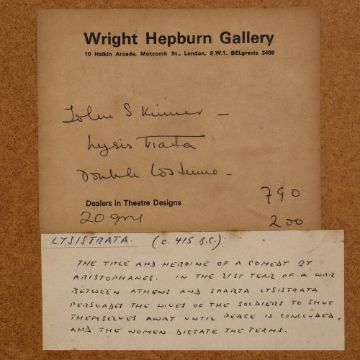 Wright Hepburn Gallery
10 Halkin Arcade, Motcomb St., London, S.W.1. BELgravia 2436
John Skinner –
Lysis Trata
Double Costume –
790
Dealers in Theatre Designs
20 gns
200
LYSISTRATA. (c. 415 B.C.)
THE TITLE AND HEROINE OF A COMEDY BY
ARISTOPHANES. IN THE 21ST YEAR OF A WAR
BETWEEN ATHENS AND SPARTA LYSISTRATA
PERSUADES THE WIVES OF THE SOLDIERS TO SHUT
THEMSELVES AWAY UNTIL PEACE IS CONCLUDED,
AND THE WOMEN DICTATE THE TERMS.